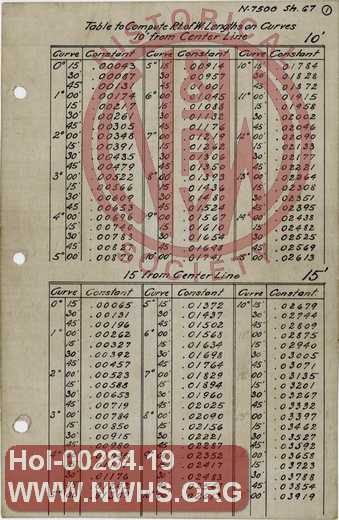 N-7500 Sh. 67 1
Table to Compute R.of W. Lengths on Curves
10' from Center Line 10'
Curve Constant Curve Constant Curve Constant
0° 15' .00043 5° 15' .00914 10° 15' .01784
30 .00087 30 .00957 30 .01828
45 .00131 45 .01001 45 .01872
1° 00 .00174 6° 00 .01045 11° 00 .01915
15 .00217 15 .01088 15 .01958
30 .00261 30 .01132 30 .02002
45 .00305 45 .01176 45 .02046
2° 00 .00348 7° 00 .01219 12° 00 .02090
15 .00391 15 .01262 15 .02133
30 .00435 30 .01306 30 .02177
45 .00479 45 .01350 45 .02221
3° 00 .00522 8° 00 .01393 13° 00 .02264
15 .00566 15 .01436 15 .02308
30 .00609 30 .01480 30 .02351
45 .00653 45 .01524 45 .02395
4° 00 .00696 9° 00 .01567 14° 00 .02438
15 .00740 15 .01610 15 .02482
30 .00783 30 .01654 30 .02525
45 .00827 45 .01698 45 .02569
5° 00 .00870 10° 00 .01741 15° 00 .02613
15' from Center Line 15'
Curve Constant Curve Constant Curve Constant
0° 15' .00065 5° 15' .01372 10° 15' .02679
30 .00131 30 .01437 30 .02744
45 .00196 45 .01502 45 .02809
1° 00 .00262 6° 00 .01568 11° 00 .02875
15 .00327 15 .01634 15 .02940
30 .00392 30 .01698 30 .03005
45 .00457 45 .01764 45 .03071
2° 00 .00523 7° 00 .01829 12° 00 .03135
15 .00588 15 .01894 15 .03201
30 .00653 30 .01960 30 .03267
45 .00719 45 .02025 45 .03332
3° 00 .00784 8° 00 .02090 13° 00 .03397
15 .00850 15 .02156 15 .03462
30 .00915 30 .02221 30 .03527
45 .00980 45 .02287 45 .03592
9° .02352 00 .03658
.02417 15 .03723
.01176 .02483 30 .03788
45 .03854
00 .03919
Hol-00284.19
WWW.NWHS.ORG